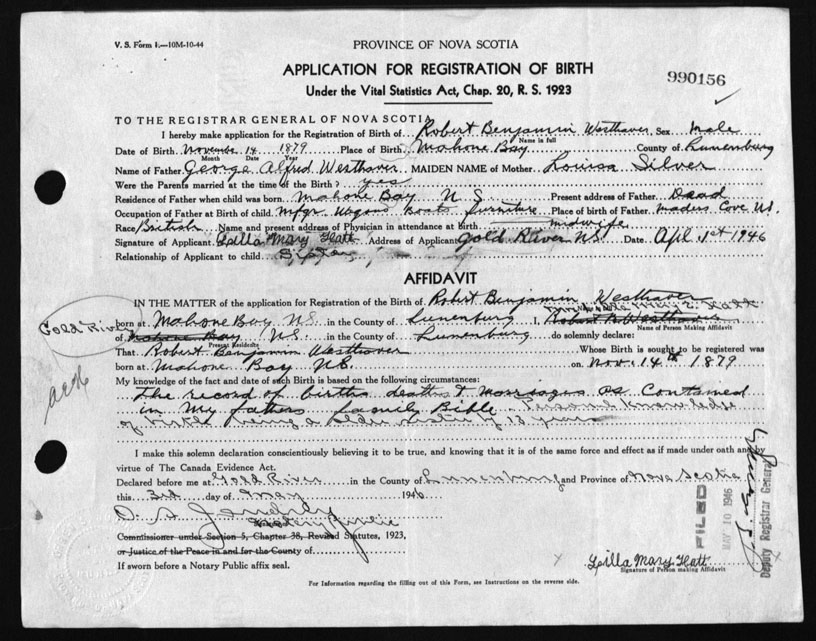 V. S. Form 1.—10M-10-44
PROVINCE OF NOVA SCOTIA
APPLICATION FOR REGISTRATION OF BIRTH
990156
Under the Vital Statistics Act, Chap. 20, R. S. 1923
TO THE REGISTRAR GENERAL OF NOVA SCOTIA
I hereby make application for the Registration of Birth of Robert Benjamin Westhaver Sex Male
Name in full
Date of Birth November 14 1879 Place of Birth Mahone Bay County of Lunenburg
Month Date Year
Name of Father George Alfred Westhaver MAIDEN NAME of Mother Louisa Silver
Were the Parents married at the time of the Birth? yes
Residence of Father when child was born Mahone Bay N S Present address of Father Dead
Occupation of Father at Birth of child Mfgr Wagons Boats furniture Place of birth of Father Maders Cove N.S.
Race British Name and present address of Physician in attendance at birth midwife
Signature of Applicant Lilla Mary Hatt Address of Applicant Gold River N.S. Date Apl. 1st 1946
Relationship of Applicant to child Sister
AFFIDAVIT
IN THE MATTER of the application for Registration of the Birth of Robert Benjamin Westhaver
born at Mahone Bay N.S. in the County of Lunenburg I, Robert B Westhaver
Name of Person Making Affidavit
Gold River
of Mahone Bay N.S. in the County of Lunenburg do solemnly declare:
Present Residence
That Robert Benjamin Westhaver Whose Birth is sought to be registered was
born at Mahone Bay N.S. on Nov. 14th 1879
My knowledge of the fact and date of such Birth is based on the following circumstances:
The record of births deaths & marriages as contained
in My fathers family Bible - Personal knowledge
of being a older sister by 13 years
I make this solemn declaration conscientiously believing it to be true, and knowing that it is of the same force and effect as if made under oath and by
virtue of The Canada Evidence Act.
Declared before me at Gold River in the County of Lunenburg and Province of Nova Scotia
this 3rd day of May 1946
Notary Public
Commissioner under Section 5, Chapter 38, Revised Statutes, 1923,
or Justice of the Peace in and for the County of
If sworn before a Notary Public affix seal.
FILED
MAY 10 1946
Deputy Registrar General
Lilla Mary Hatt
Signature of Person making Affidavit
For Information regarding the filling out of this Form, see Instructions on the reverse side.